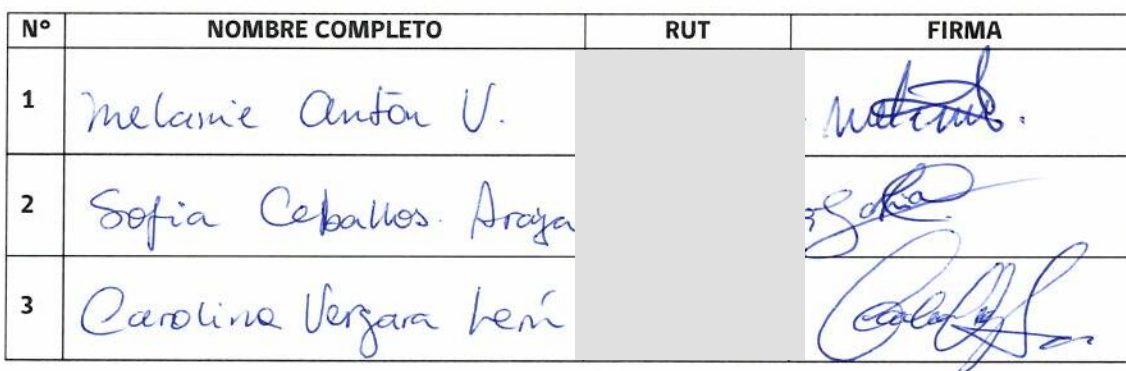 N° NOMBRE COMPLETO RUT FIRMA
1 Melanie Antón V.
2 Sofia Ceballos Araya Sofia
3 Carolina Vergara